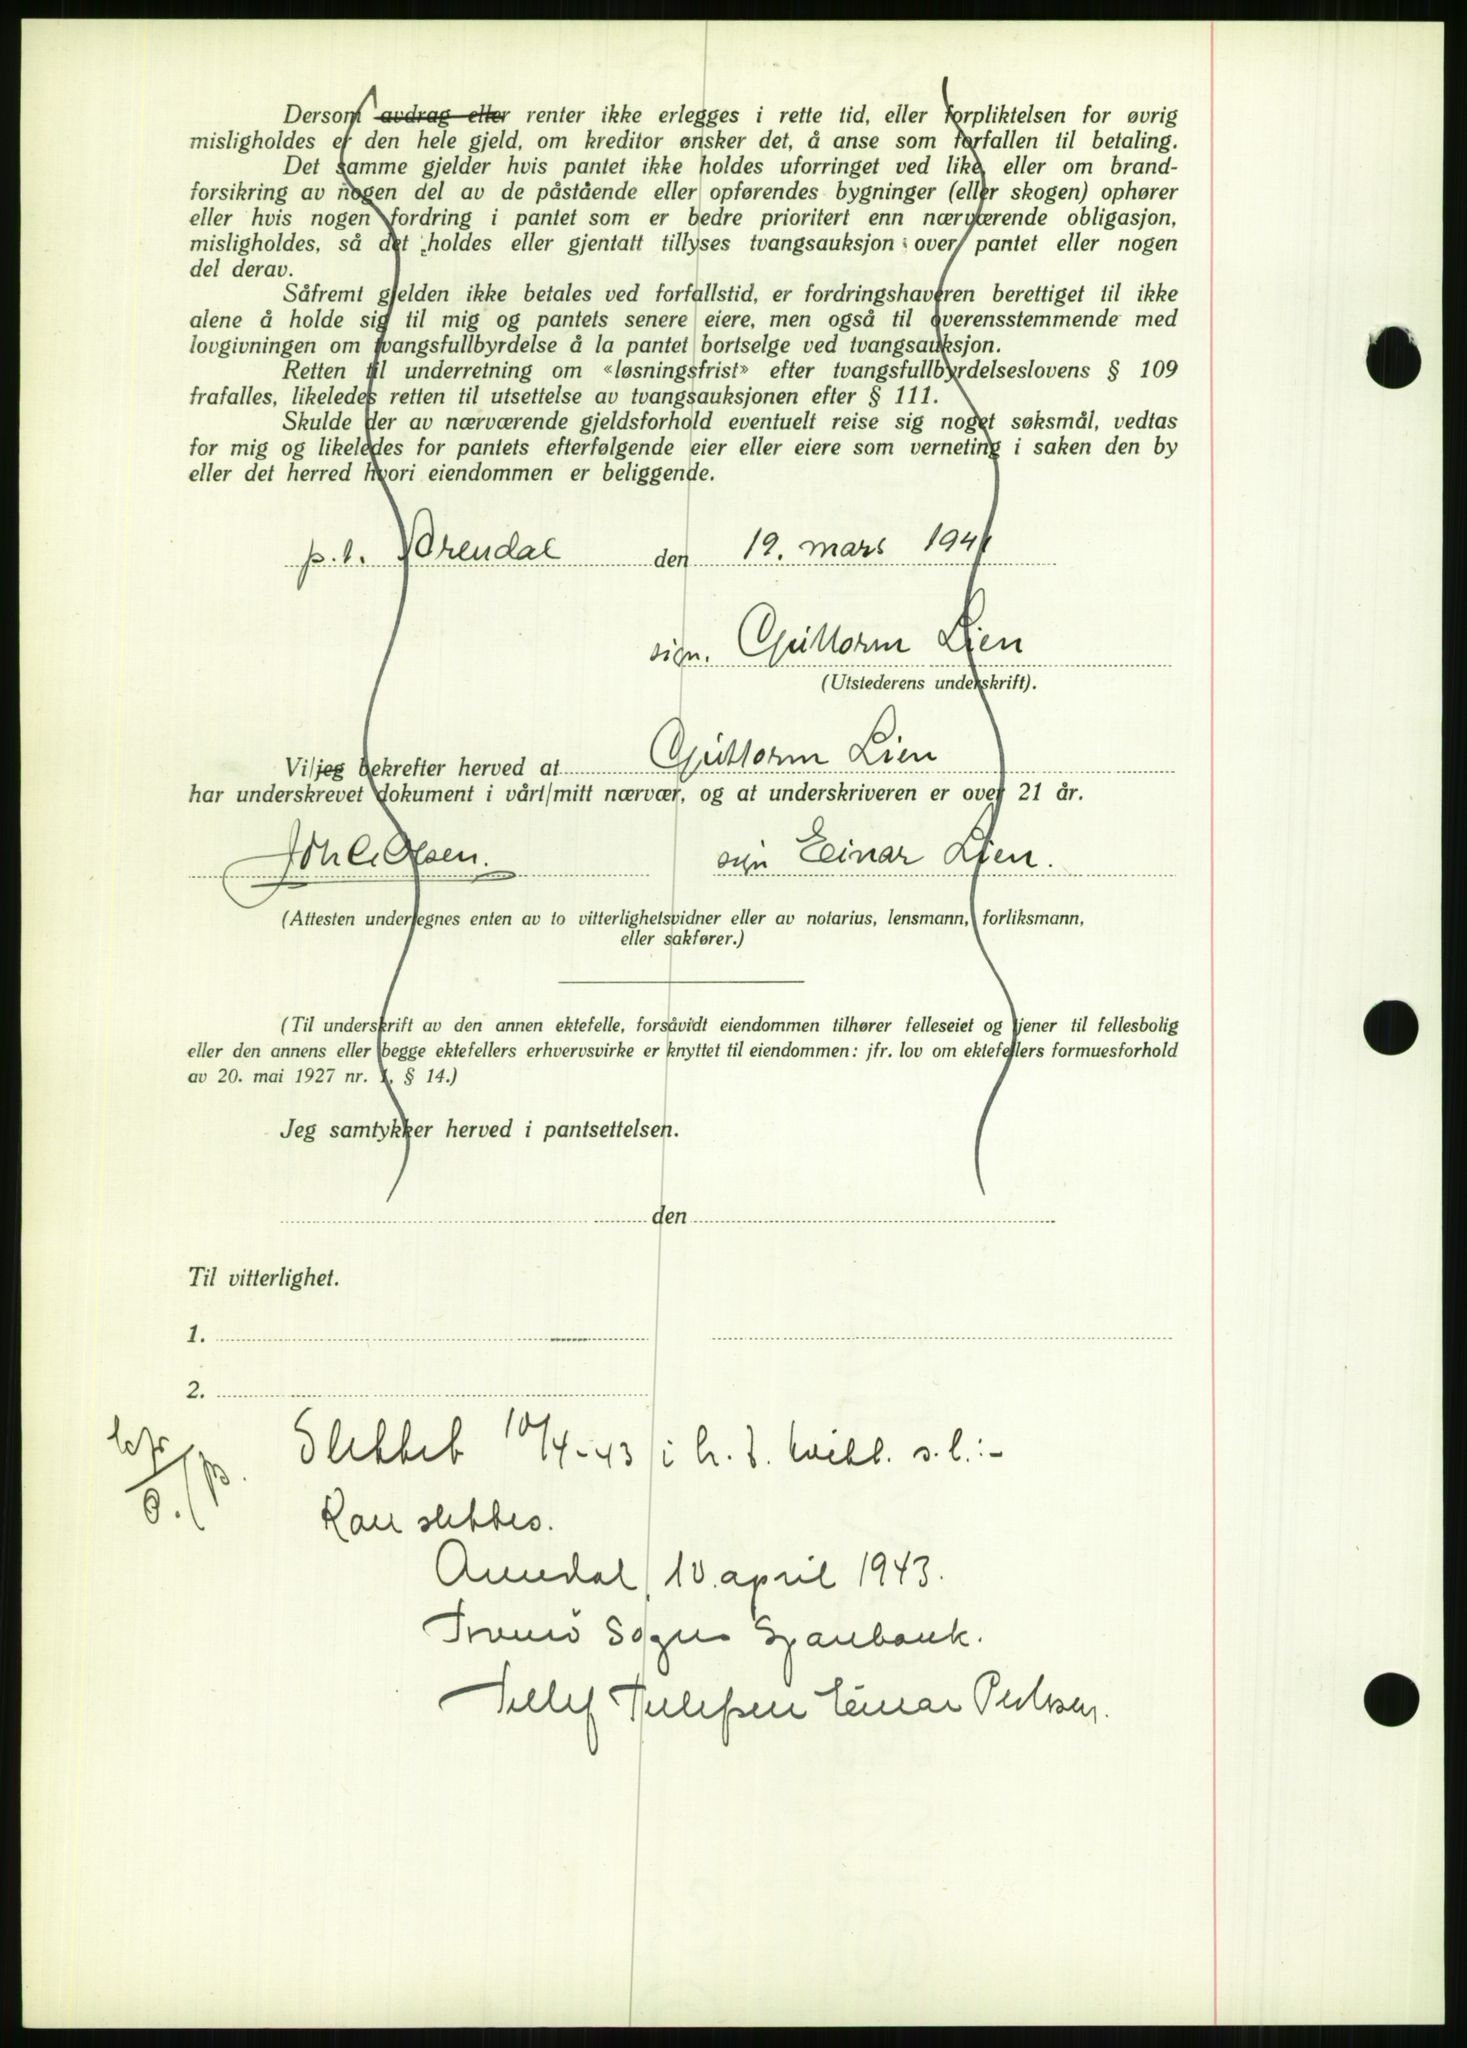 Dersom avdrag eller renter ikke erlegges i rette tid, eller forpliktelsen for øvrig
misligholdes er den hele gjeld, om kreditor ønsker det, å anse som forfallen til betaling.
Det samme gjelder hvis pantet ikke holdes uforringet ved like, eller om brand-
forsikring av nogen del av de påstående eller opførendes bygninger (eller skogen) ophører
eller hvis nogen fordring i pantet som er bedre prioritert enn nærværende obligasjon,
misligholdes, så det holdes eller gjentatt tillyses tvangsauksjon over pantet eller nogen
del derav.
Såfremt gjelden ikke betales ved forfallstid, er fordringshaveren berettiget til ikke
alene å holde sig til mig og pantets senere eiere, men også til overensstemmende med
lovgivningen om tvangsfullbyrdelse å la pantet bortselge ved tvangsauksjon.
Retten til underretning om «løsningsfrist» efter tvangsfullbyrdelseslovens § 109
frafalles, likeledes retten til utsettelse av tvangsauksjonen efter § 111.
Skulde der av nærværende gjeldsforhold eventuelt reise sig noget søksmål, vedtas
for mig og likeledes for pantets efterfølgende eier eller eiere som verneting i saken den by
eller det herred hvori eiendommen er beliggende.
p.t. Arendal den 19. mars 1941
sign. Guttorm Lien
(Utstederens underskrift).
Vi/jeg bekrefter herved at Guttorm Lien
har underskrevet dokument i vårt/mitt nærvær, og at underskriveren er over 21 år.
Joh. C. Olsen. sign Einar Lien.
(Attesten undertegnes enten av to vitterlighetsvidner eller av notarius, lensmann, forliksmann,
eller sakfører.)
(Til underskrift av den annen ektefelle, forsåvidt eiendommen tilhører felleseiet og tjener til fellesbolig
eller den annens eller begge ektefellers erhvervsvirke er knyttet til eiendommen: jfr. lov om ektefellers formuesforhold
av 20. mai 1927 nr. 1, § 14.)
Jeg samtykker herved i pantsettelsen.
den
Til vitterlighet.
1.
2.
Slettet 10/4-43 i h. t. kvitt. s.l.:-
Kan slettes.
Arendal, 10. april 1943.
Tromø Sogns Sparebank.
Tellef Tellefsen Einar Pedersen.